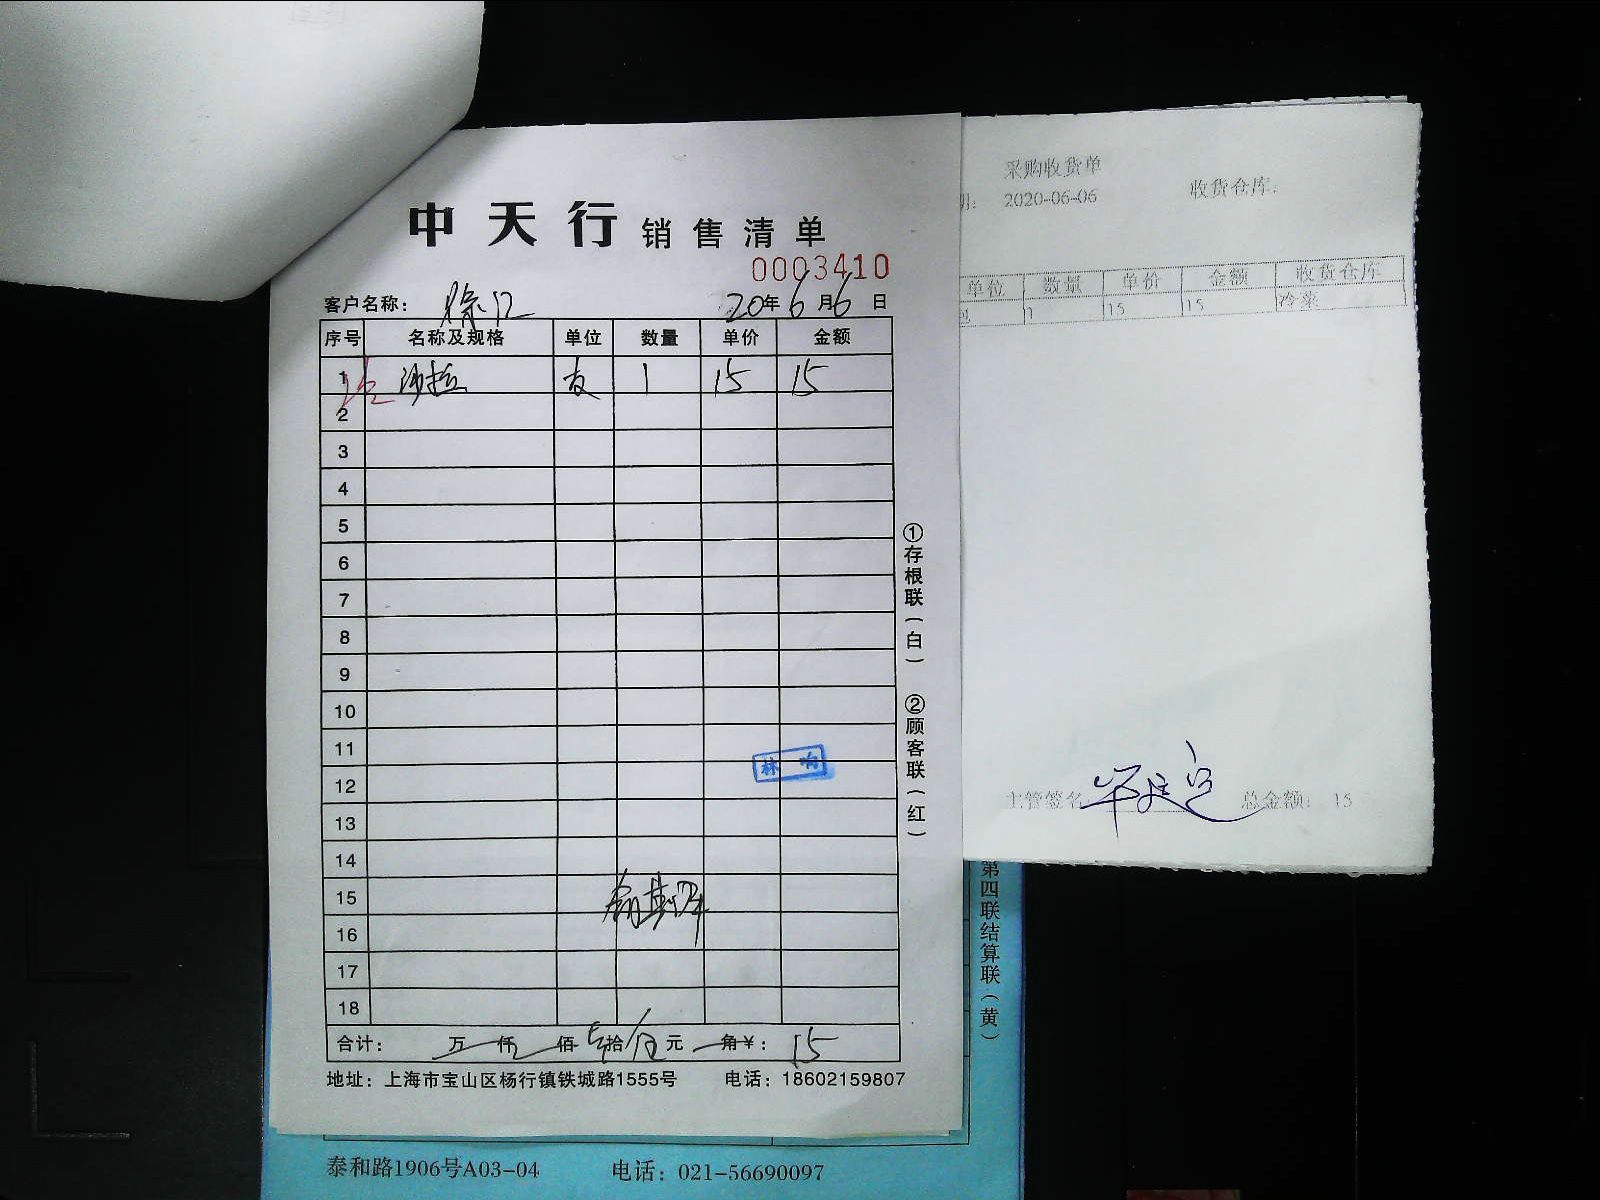 中天行 销售清单
0003410
客户名称： 徐汇 20年6月6日
序号 名称及规格 单位 数量 单价 金额
1 沙拉 支 1 15 15
2
3
4
5
6
7
8
9
10
11
12
13
14
15
16
17
18
合计： 万 仟 佰 拾 伍 元 角 ¥： 15
地址：上海市宝山区杨行镇铁城路1555号 电话：18602159807
①存根联（白） ②顾客联（红）
林
采购收货单
期： 2020-06-06 收货仓库：
单位 数量 单价 金额 收货仓库
包 1 15 15 冷菜
主管签名 总金额： 15
第四联结算联（黄）
泰和路1906号A03-04 电话：021-56690097